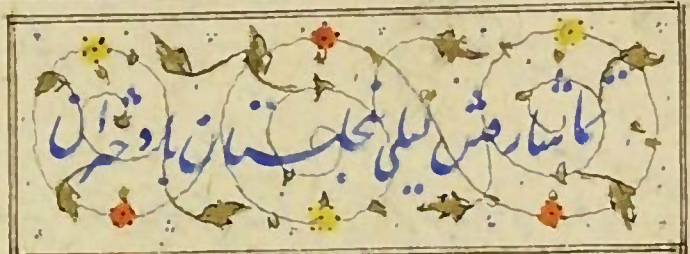 تماشا رفتن لیلی بنخلستان با دختران